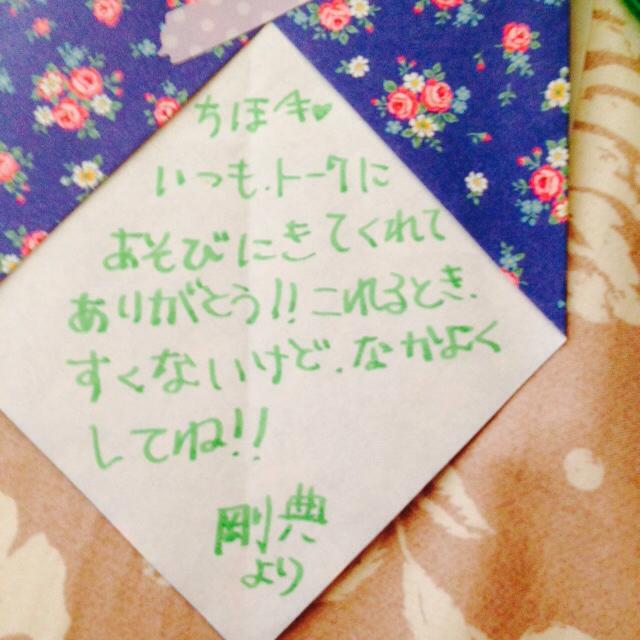 かほへ♥
いつも.トークに
あそびにきてくれて
ありがとう!!これるとき.
すくないけど.なかよく
してね!!
剛典
より